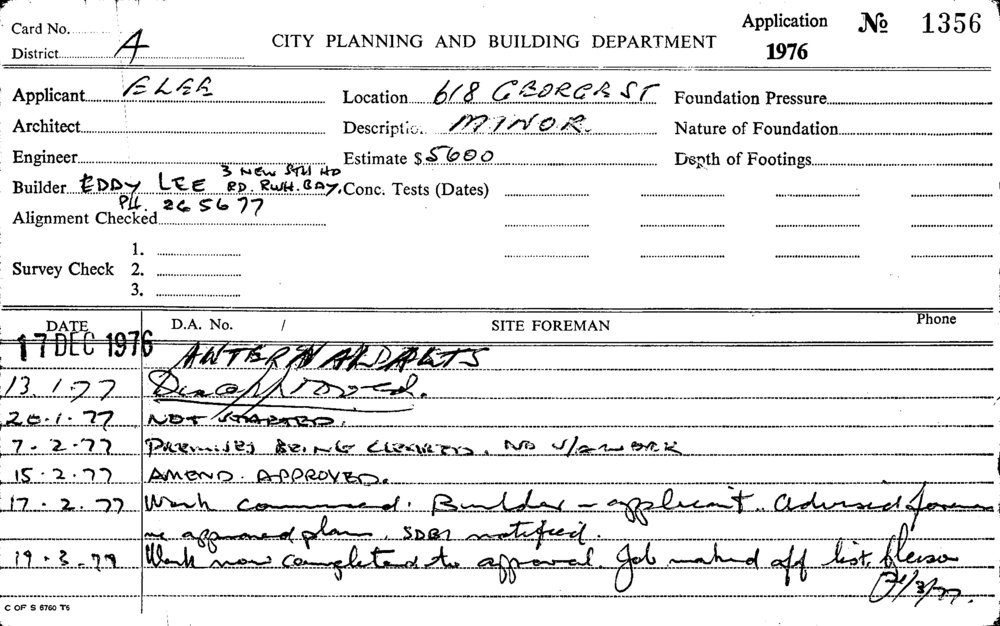 Card No.
District A
CITY PLANNING AND BUILDING DEPARTMENT
Application No 1356
1976
Applicant E LEE
Location 618 GEORGE ST
Foundation Pressure
Architect
Description MINOR.
Nature of Foundation
Engineer
Estimate $ 5600
Depth of Footings
Builder EDDY LEE 3 NEW STH HD
RD. RUSH. BAY.
PH. 26 5677
Conc. Tests (Dates)
Alignment Checked
Survey Check
1.
2.
3.
DATE
D.A. No. /
SITE FOREMAN
Phone
17 DEC 1976
13.1.77
20.1.77 NOT STARTED.
7.2.77 PREMISES BEING CLEARED. NO WORK
15.2.77 AMEND. APPROVED.
17.2.77 Work commenced. Builder - applicant. Advised foreman
re approved plan. notified.
19.3.77 Work now completed to approval. Job marked off list, please
C OF S 6760 T6